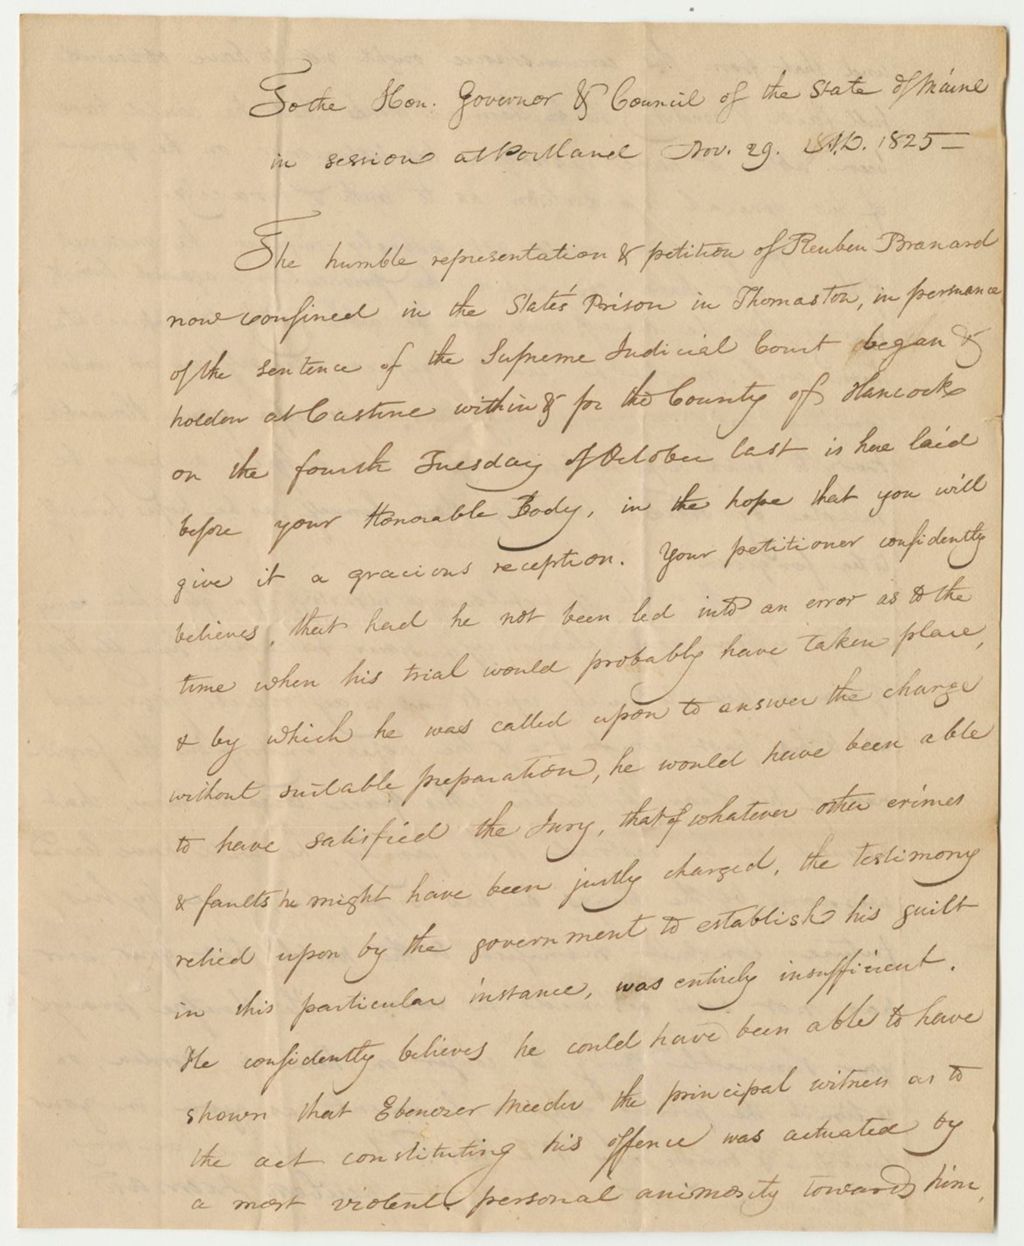 To the Hon. Governor & Council of the State of Maine
in session at Portland Nov. 29. A.D. 1825—
The humble representation & petition of Reuben Branard
now confined in the State's Prison in Thomaston, in persuance
of the sentence of the Supreme Judicial Court began &
holden at Castine within & for the County of Hancock
on the fourth Tuesday of October last is here laid
before your Honorable Body, in the hope that you will
give it a gracious reception. Your petitioner confidently
believes, that had he not been led into an error as to the
time when his trial would probably have taken place,
& by which he was called upon to answer the charge
without suitable preparation, he would have been able
to have satisfied the Jury, that of whatever other crimes
& faults he might have been justly charged, the testimony
relied upon by the government to establish his guilt
in this particular instance, was entirely insufficient.
He confidently believes he could have been able to have
shown that Ebenezer Meeder the principal witness as to
the act constituting his offence was actuated by
a most violent personal animosity towards him,